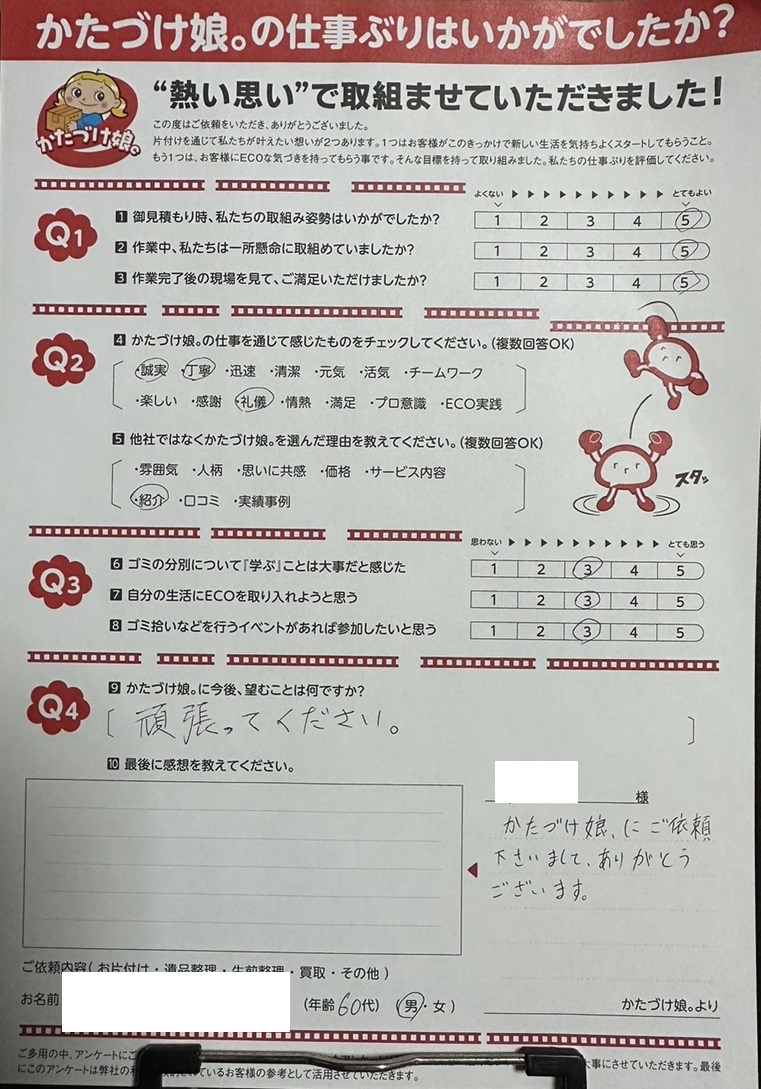 かたづけ娘。の仕事ぶりはいかがでしたか?
かたづけ娘。
“熱い思い”で取組ませていただきました!
この度はご依頼をいただき、ありがとうございました。
片付けを通じて私たちが叶えたい想いが2つあります。1つはお客様がこのきっかけで新しい生活を気持ちよくスタートしてもらうこと。
もう1つは、お客様にECOな気づきを持ってもらう事です。そんな目標を持って取り組みました。私たちの仕事ぶりを評価してください。
よくない ▶▶▶▶▶▶▶▶▶▶ とてもよい
Q1
1 御見積もり時、私たちの取組み姿勢はいかがでしたか? 1 2 3 4 5
2 作業中、私たちは一所懸命に取組めていましたか? 1 2 3 4 5
3 作業完了後の現場を見て、ご満足いただけましたか? 1 2 3 4 5
Q2
4 かたづけ娘。の仕事を通じて感じたものをチェックしてください。(複数回答OK)
・誠実 ・丁寧 ・迅速 ・清潔 ・元気 ・活気 ・チームワーク
・楽しい ・感謝 ・礼儀 ・情熱 ・満足 ・プロ意識 ・ECO実践
5 他社ではなくかたづけ娘。を選んだ理由を教えてください。(複数回答OK)
・雰囲気 ・人柄 ・思いに共感 ・価格 ・サービス内容
・紹介 ・口コミ ・実績事例
スタッ
思わない ▶▶▶▶▶▶▶▶▶▶ とても思う
Q3
6 ゴミの分別について『学ぶ』ことは大事だと感じた 1 2 3 4 5
7 自分の生活にECOを取り入れようと思う 1 2 3 4 5
8 ゴミ拾いなどを行うイベントがあれば参加したいと思う 1 2 3 4 5
Q4
9 かたづけ娘。に今後、望むことは何ですか?
頑張ってください。
10 最後に感想を教えてください。
様
かたづけ娘。にご依頼
下さいまして、ありがとう
ございます。
かたづけ娘。より
ご依頼内容( お片付け・遺品整理・生前整理・買取・その他 )
お名前 (年齢60代) (男・女)
ご多用の中、アンケートにご 大事にさせていただきます。最後
にこのアンケートは弊社の されているお客様の参考として活用させていただきます。